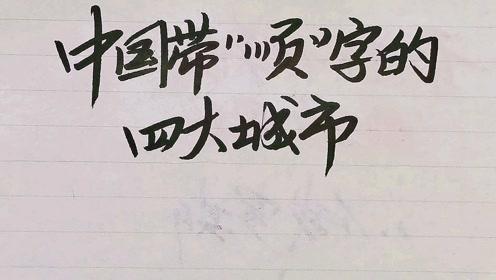 中国带"顺"字的
四大城市